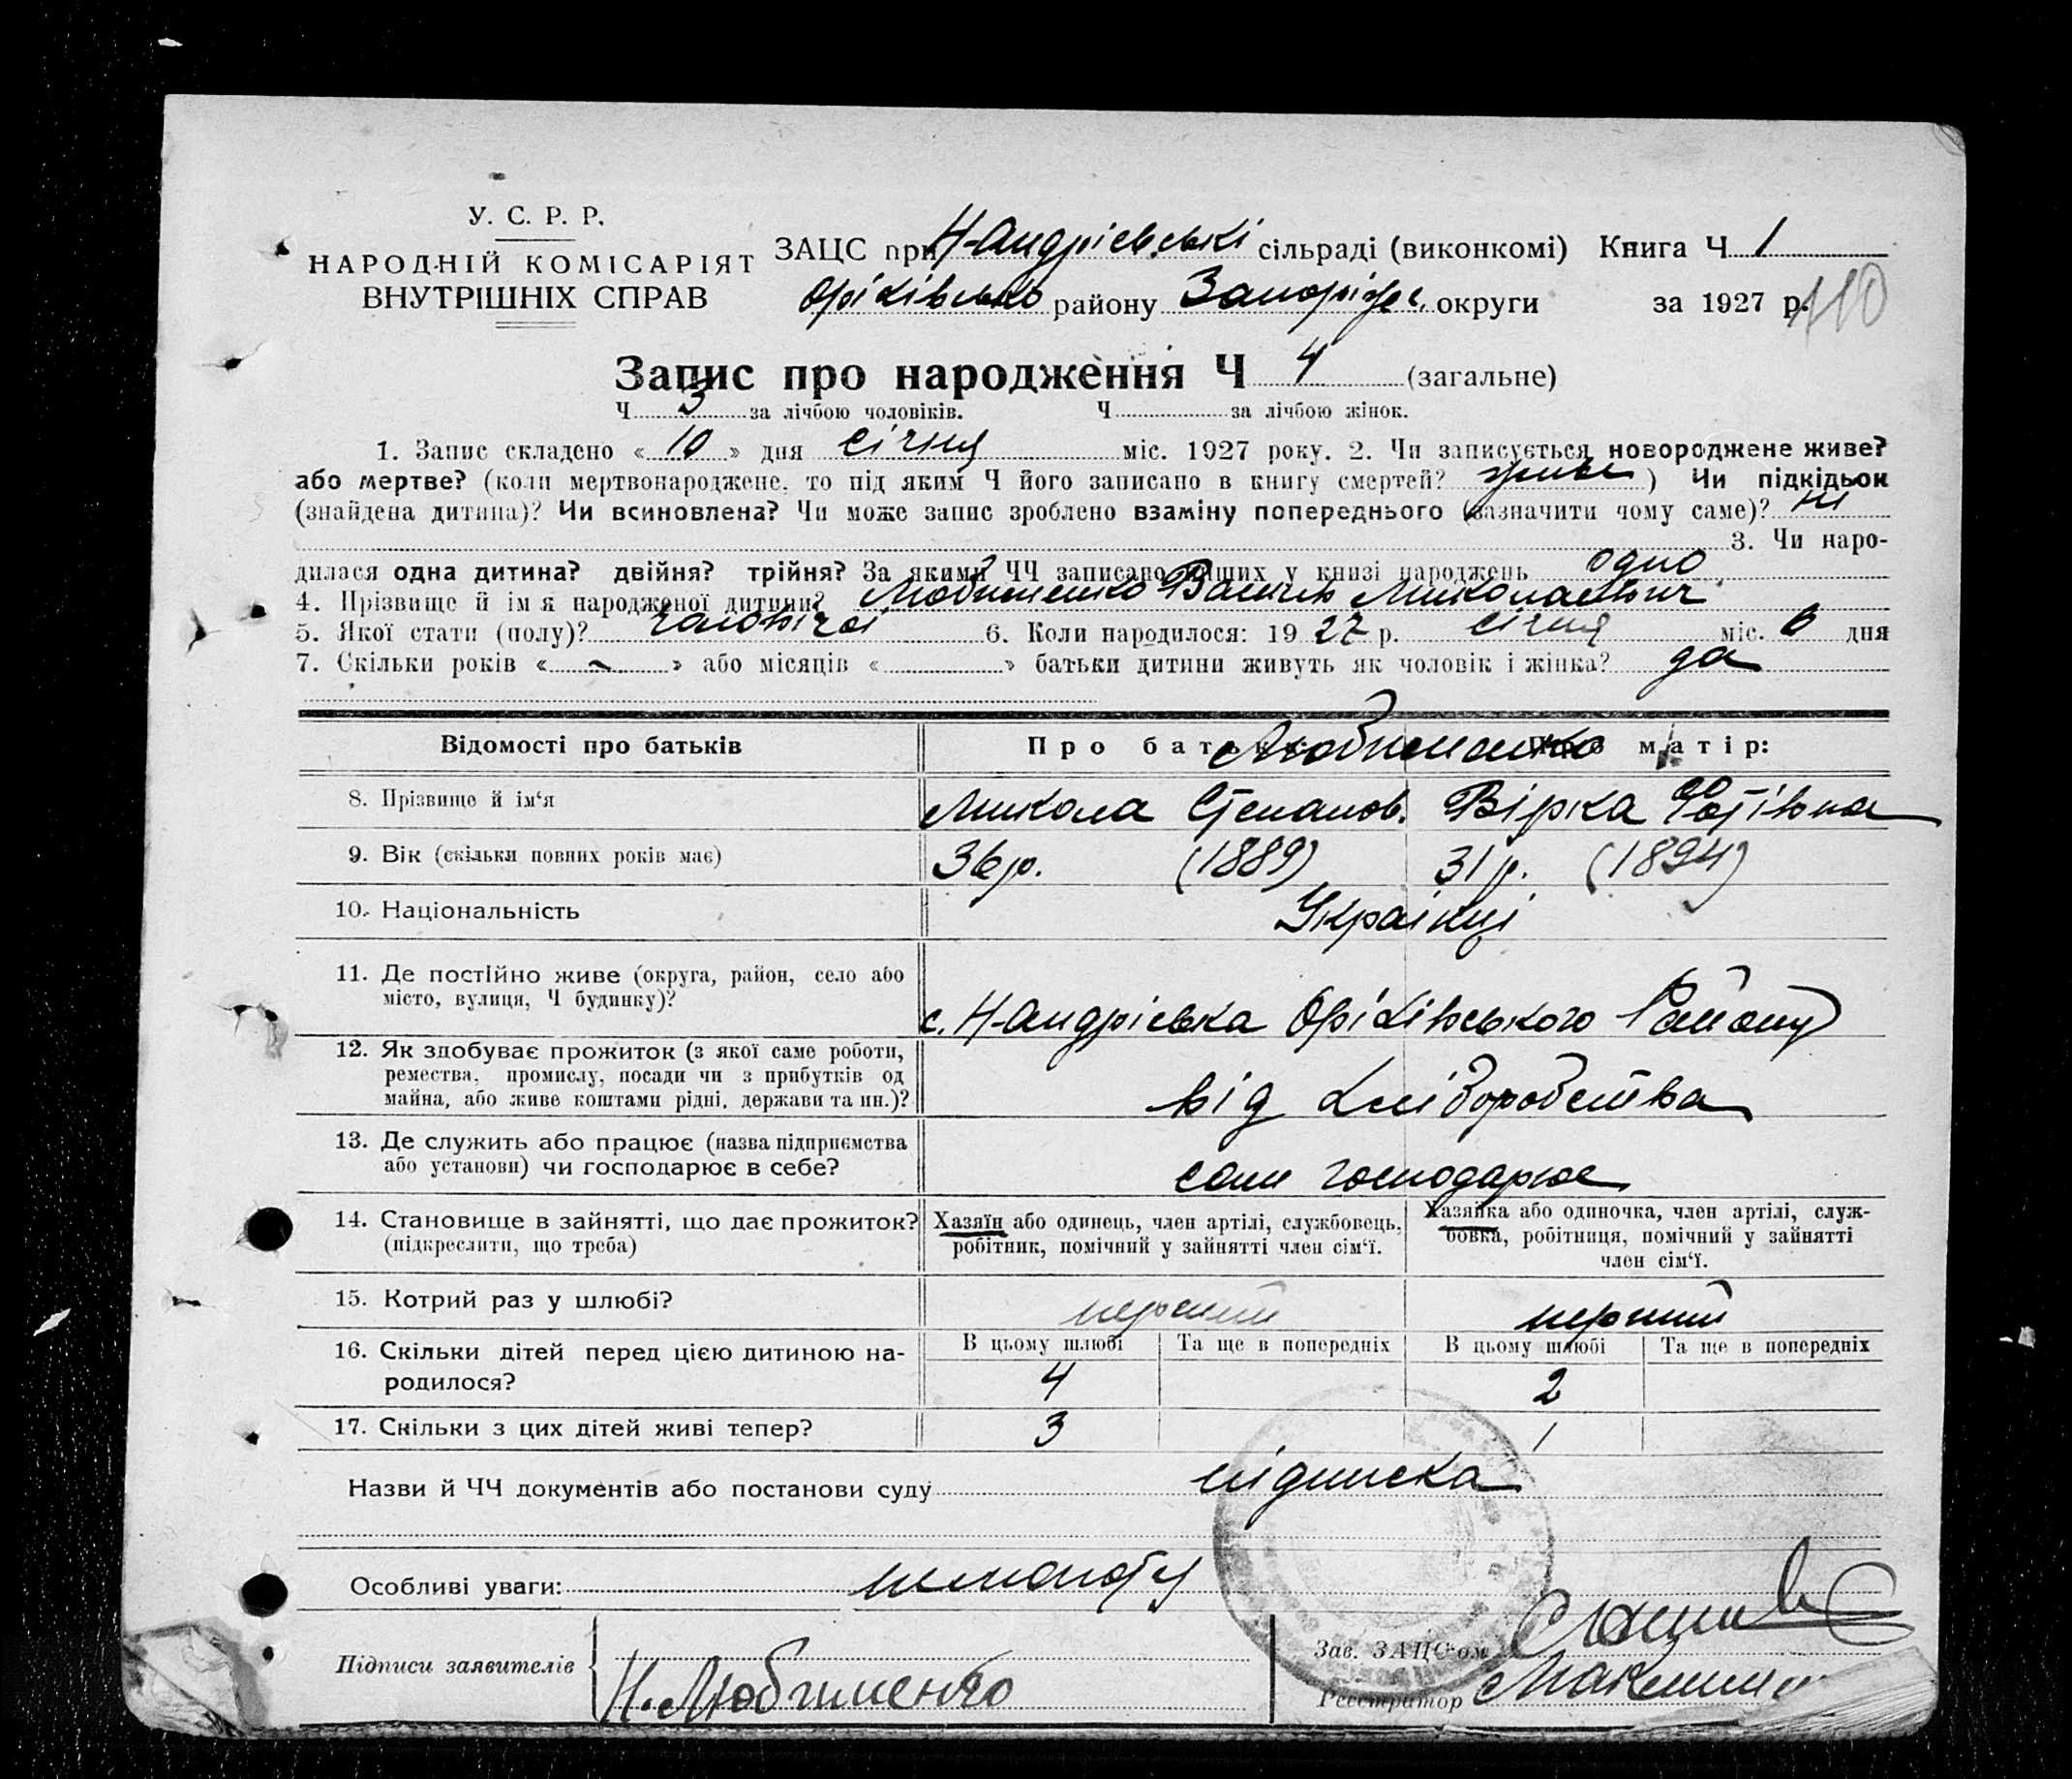 У. С. Р. Р.
НАРОДНІЙ КОМІСАРІЯТ
ВНУТРІШНІХ СПРАВ
ЗАЦС при Н-Андрієвські сільраді (виконкомі) Книга Ч 1
Оріхівсько району Запоріж. округи за 1927 р. 110
Запис про народження Ч 4 (загальне)
Ч 3 за лічбою чоловіків. Ч за лічбою жінок.
1. Запис складено « 10 » дня січня міс. 1927 року. 2. Чи записується новороджене живе?
або мертве? (коли мертвонароджене, то під яким Ч його записано в книгу смертей? живе ) Чи підкідьок
(знайдена дитина)? Чи всиновлена? Чи може запис зроблено взаміну попереднього (зазначити чому саме)? ні
3. Чи наро-
дилася одна дитина? двійня? трійня? За якими ЧЧ записано інших у книзі народжень одно
4. Прізвище й ім'я народженої дитини? Любименко Василь Миколаєвич
5. Якої стати (полу)? чоловічої 6. Коли народилося: 19 27 р. січня міс. 6 дня
7. Скільки років « » або місяців « » батьки дитини живуть як чоловік і жінка? да
Відомості про батьків Про батька: Любименко Про матір:
8. Прізвище й ім'я Микола Степанов. Вірка Фотівна
9. Вік (скільки повних років має) 36 р. (1889) 31 р. (1894)
10. Національність Українці
11. Де постійно живе (округа, район, село або
місто, вулиця, Ч будинку)? с. Н-Андрієвка Оріхівського Району
12. Як здобуває прожиток (з якої саме роботи,
ремества, промислу, посади чи з прибутків од
майна, або живе коштами рідні, держави та ин.)? від хліборобства
13. Де служить або працює (назва підприємства
або установи) чи господарює в себе? сами господарює
14. Становище в зайнятті, що дає прожиток?
(підкреслити, що треба)
Хазяїн або одинець, член артілі, службовець,
робітник, помічний у зайнятті член сім'ї.
Хазяйка або одиночка, член артілі, служ-
бовка, робітниця, помічний у зайнятті
член сім'ї.
15. Котрий раз у шлюбі? перший перший
В цьому шлюбі Та ще в попередніх В цьому шлюбі Та ще в попередніх
16. Скільки дітей перед цією дитиною на-
родилося? 4 2
17. Скільки з цих дітей живі тепер? 3 1
Назви й ЧЧ документів або постанови суду підписка
Особливі уваги:
Підписи заявителів Н. Любименко
Зав. ЗАЦС-ом
Реєстратор